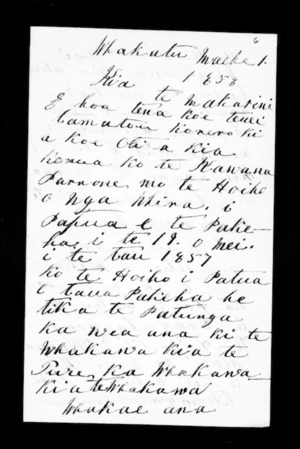 6
Whakatu Maehe 1.
1858
Kia te Makarini
E hoa tena koe tenei
tamatou korero ki
a koe Otia kia
korua ko te Kawana
Paraone mo te Hoiho
o Nga
Papua e te Pake-
ha. i te 19. o mei.
i te tau 1857
ko te Hoiho i Patua
e taua Pakeha he
tika te Patunga
ka wea ana ki te
Whakawa kia te
Ture, ka Whakawa
kia te Whakawa
Whakae ana